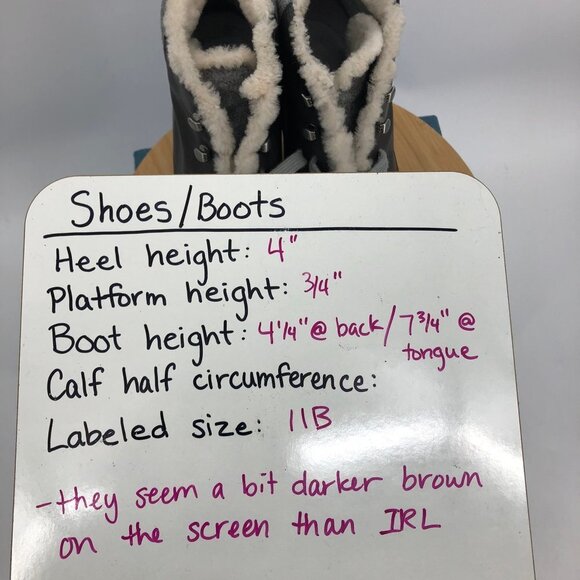 Shoes/Boots
Heel height: 4"
Platform height: 3/4"
Boot height: 4 1/4" @ back/7 3/4" @
tongue
Calf half circumference:
Labeled size: 11B
-they seem a bit darker brown
on the screen than IRL